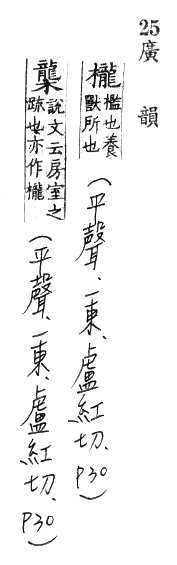 25廣韻
櫳檻也養
獸所也
(平聲、一東、盧紅切、P30)
說文云房室之
踈也亦作櫳
(平聲、一東、盧紅切、P30)